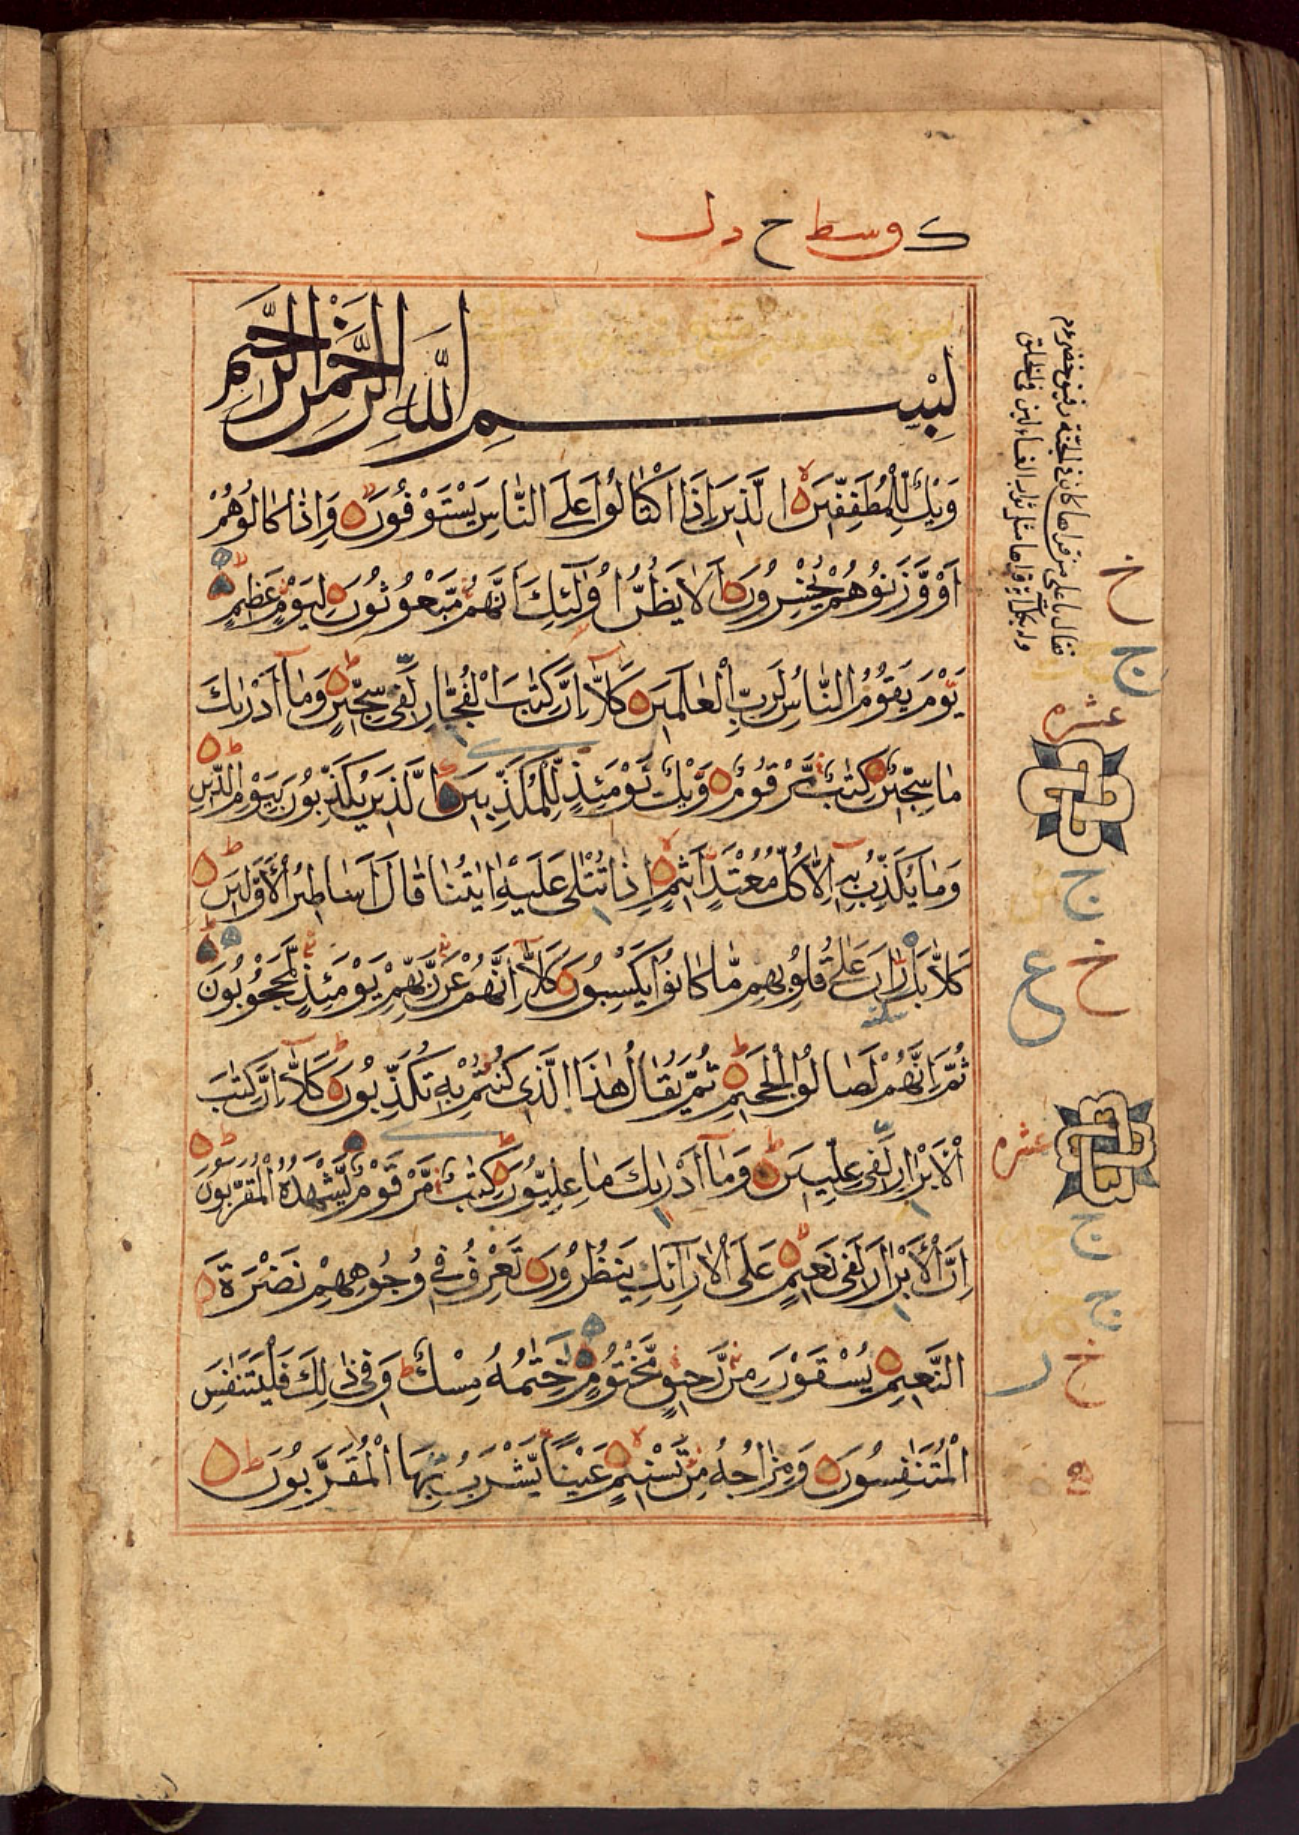 ك وسط ح دل
بِسْمِ اللّٰهِ الرَّحْمٰنِ الرَّحِيمِ
وَيْلٌ لِّلْمُطَفِّفِينَ الَّذِينَ إِذَا اكْتَالُوا عَلَى النَّاسِ يَسْتَوْفُونَ وَإِذَا كَالُوهُمْ
أَوْ وَّزَنُوهُمْ يُخْسِرُونَ أَلَا يَظُنُّ أُولٰئِكَ أَنَّهُمْ مَّبْعُوثُونَ لِيَوْمٍ عَظِيمٍ
يَوْمَ يَقُومُ النَّاسُ لِرَبِّ الْعٰلَمِينَ كَلَّا إِنَّ كِتٰبَ الْفُجَّارِ لَفِي سِجِّينٍ وَمَا أَدْرٰىكَ
مَا سِجِّينٌ كِتٰبٌ مَّرْقُومٌ وَيْلٌ يَوْمَئِذٍ لِّلْمُكَذِّبِينَ الَّذِينَ يُكَذِّبُونَ بِيَوْمِ الدِّينِ
وَمَا يُكَذِّبُ بِهِ إِلَّا كُلُّ مُعْتَدٍ أَثِيمٍ إِذَا تُتْلٰى عَلَيْهِ اٰيٰتُنَا قَالَ أَسَاطِيرُ الْأَوَّلِينَ
كَلَّا بَلْ رَانَ عَلٰى قُلُوبِهِمْ مَّا كَانُوا يَكْسِبُونَ كَلَّا إِنَّهُمْ عَنْ رَّبِّهِمْ يَوْمَئِذٍ لَّمَحْجُوبُونَ
ثُمَّ إِنَّهُمْ لَصَالُوا الْجَحِيمِ ثُمَّ يُقَالُ هٰذَا الَّذِي كُنْتُمْ بِهِ تُكَذِّبُونَ كَلَّا إِنَّ كِتٰبَ
الْأَبْرَارِ لَفِي عِلِّيِّينَ وَمَا أَدْرٰىكَ مَا عِلِّيُّونَ كِتٰبٌ مَّرْقُومٌ يَّشْهَدُهُ الْمُقَرَّبُونَ
إِنَّ الْأَبْرَارَ لَفِي نَعِيمٍ عَلَى الْأَرَائِكِ يَنْظُرُونَ تَعْرِفُ فِي وُجُوهِهِمْ نَضْرَةَ
النَّعِيمِ يُسْقَوْنَ مِنْ رَّحِيقٍ مَّخْتُومٍ خِتٰمُهُ مِسْكٌ وَفِي ذٰلِكَ فَلْيَتَنَافَسِ
الْمُتَنٰفِسُونَ وَمِزَاجُهُ مِنْ تَسْنِيمٍ عَيْنًا يَّشْرَبُ بِهَا الْمُقَرَّبُونَ
سكته
خ
ج
عشره
ج
خ
ع
عشره
ج
ج
خ